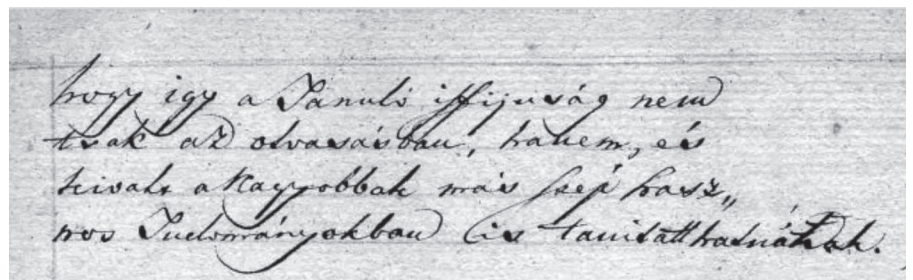 hogy igy a Tanuló iffijuság nem
tsak az olvasásban, hanem, és
kivált a Nagyobbak más szép hasz„
nos Tudományokban is tanitatthatnának.